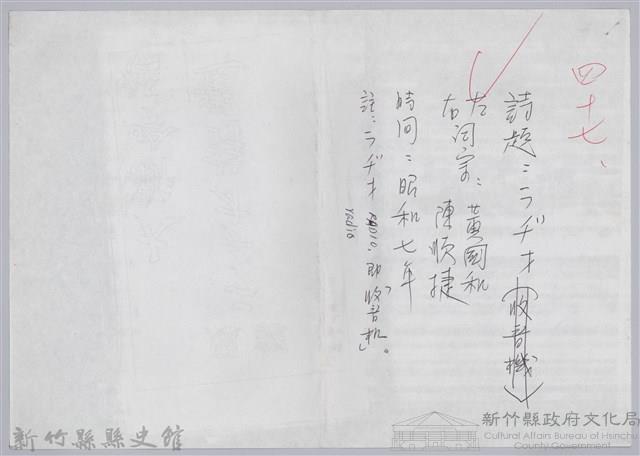 四十七、
詩題：ラヂオ（收音機）
左詞宗：黃國和
右詞宗：陳順捷
時間：昭和七年
註：ラヂオ radio，即「收音机」。
radio
新竹縣縣史館
新竹縣政府文化局
Cultural Affairs Bureau of Hsinchu
County Government